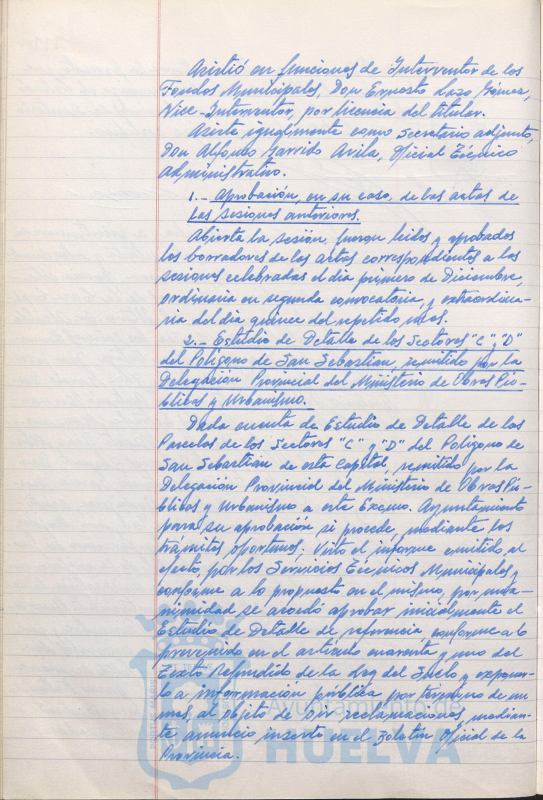 Asistió en funciones de Interventor de los
Fondos Municipales, Don Ernesto Lazo Gómez,
Vice-Interventor, por licencia del titular.
Asiste igualmente como Secretario adjunto,
Don Alfonso Garrido Avila, Oficial Técnico
Administrativo.
1.- Aprobación, en su caso, de las actas de
las sesiones anteriores.
Abierta la sesión, fueron leídos y aprobados
los borradores de las actas correspondientes a las
sesiones celebradas el día primero de Diciembre,
ordinaria en segunda convocatoria, y extraordina-
ria del día quince del repetido mes.
2.- Estudio de Detalle de los Sectores "C" y "D"
del Polígono de San Sebastian, remitido por la
Delegación Provincial del Ministerio de Obras Pú-
blicas y Urbanismo.
Dada cuenta de Estudio de Detalle de las
Parcelas de los Sectores "C" y "D" del Polígono de
San Sebastian de esta Capital, remitido por la
Delegación Provincial del Ministerio de Obras Pú-
blicas y Urbanismo a este Excmo. Ayuntamiento
para su aprobación si procede, mediante los
trámites oportunos. Visto el informe emitido, al
efecto, por los Servicios Técnicos Municipales y
conforme a lo propuesto en el mismo, por una-
nimidad se acordó aprobar inicialmente el
Estudio de Detalle de referencia conforme a lo
prevenido en el artículo cuarenta y uno del
Texto Refundido de la Ley del Suelo y exponer-
lo a información pública por término de un
mes al objeto de oir reclamaciones, median-
te anuncio inserto en el Boletín Oficial de la
Provincia.
Ayuntamiento de
HUELVA